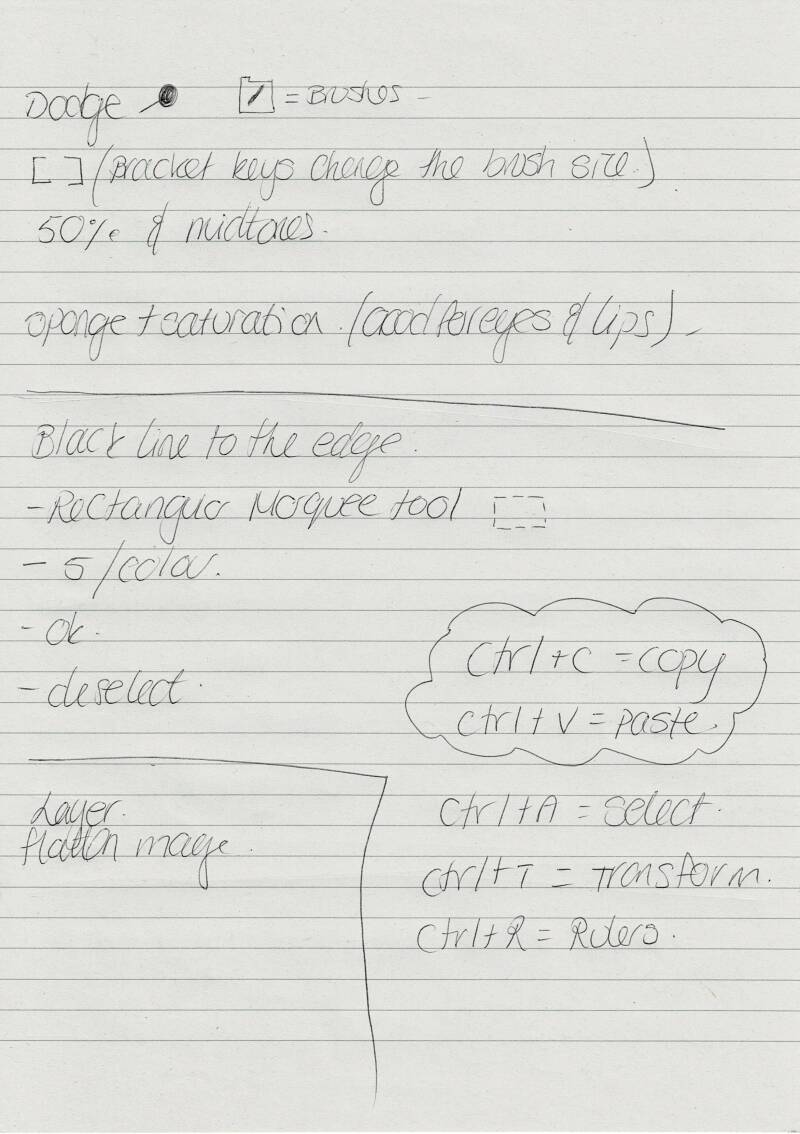 Dodge = Brushes -
[ ] (Bracket keys change the brush size.)
50% & midtones.
Sponge + saturation. (Good for eyes & lips) -
Black line to the edge.
- Rectangular Marquee tool
- 5/color.
- Ok.
- deselect.
Ctrl+C = copy
Ctrl+V = paste.
Layer.
flatten image.
Ctrl+A = Select.
Ctrl+T = Transform.
Ctrl+R = Rulers.